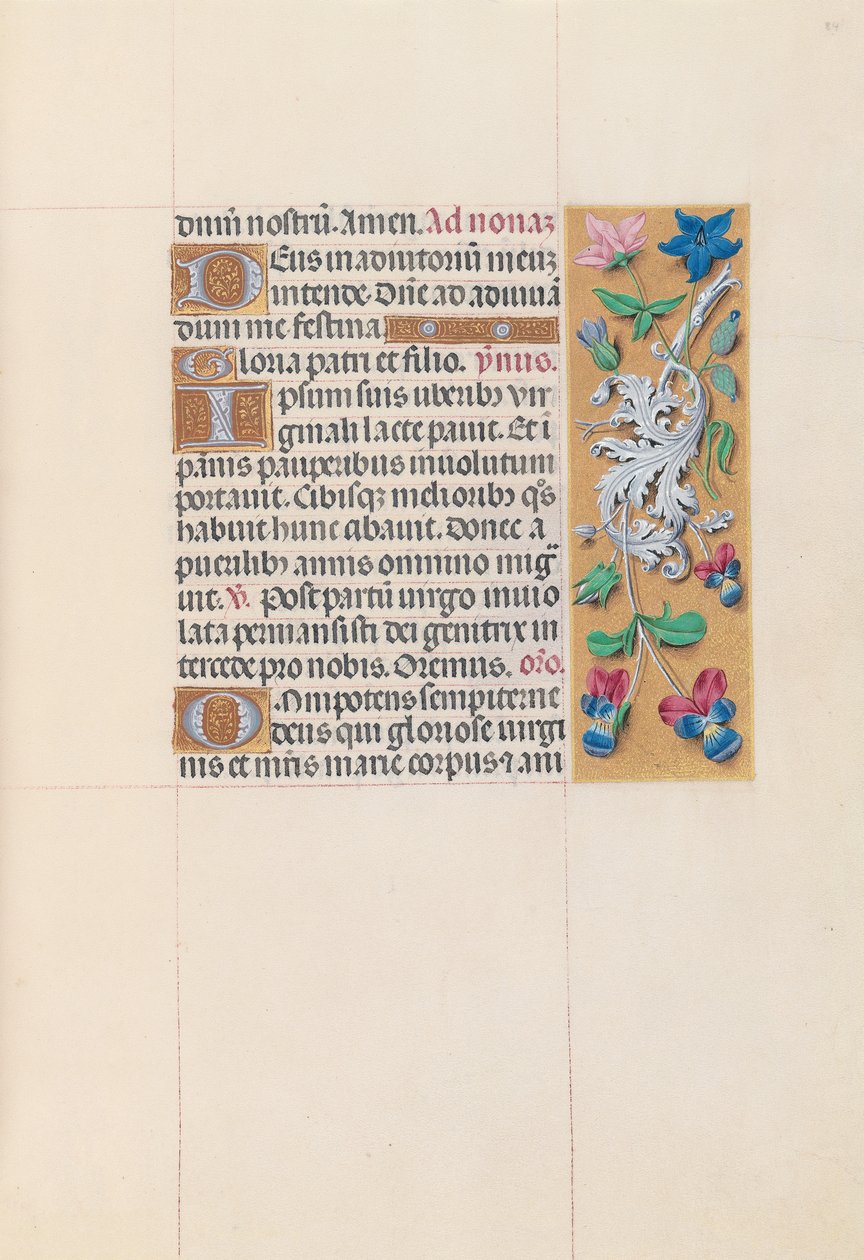 84
dnm̄ nostrū. Amen. Ad nonaʒ
Deus in adiutoriū meuʒ
intende. Dn̄e ad adiuuā
dum me festina
Gloria patri et filio. ẏn̄us.
Ipsum suis uberibꝫ vir
ginali lacte pauit. Et ī
pānis pauperibus inuolutum
portauit. Cibisqꝫ melioribꝫ qͦs
habuit hunc cibauit. Donec a
puerilibꝫ annis omnino mig
uit. ℣. Post partū uirgo inuio
lata permansisti dei genitrix in
tercede pro nobis. Oremus. oro.
Omnipotens sempiterne
deus qui gloriose uirgi
nis et mr̄is marie corpus ⁊ ani